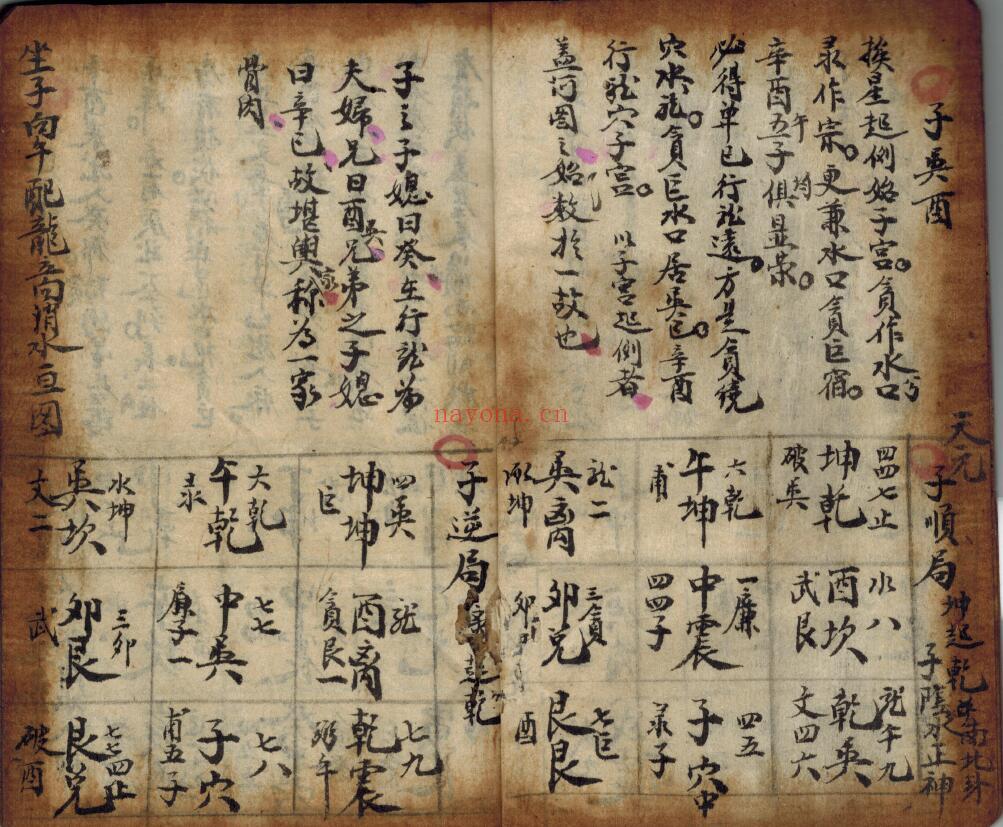 子 巽 酉
挨星起例始子宫。貪作水口
彔作宗。更兼水口貪巨宿。
辛酉五子俱显荣。
午 均
必得单巳行龙遠。方是貪繞
穴水秘貪巨水口居巽巳。辛酉
行龙穴子宫。以子宫起例者
盖河图之始数於一故也
子之子媳曰癸在行龙為
夫婦兄曰酉兄弟之子媳
巽
曰辛巳故堪輿称為一家
家
骨肉
坐子向午配龍立向消水亘图
天元
子順局
坤起乾
子陰水正神
四四七止
坤乾
破巽
六乾
午坤
甫
龙二
巽离
水八
酉坎
武艮
一廉
中震
四四子
三貪
卯兑
龙午九
乾巽
文四六
四五
子穴中
彔子
七巨
艮艮
酉
子逆局
四巽
坤坤
巨
大乾
午乾
彔
水坤
巽坎
文二
龙
酉离
貪艮一
七七
中巽
廉子一
三卯
卯艮
武
七九
乾震
弼午
七八
子穴
甫五子
七七四止
艮兑
破酉
nayona.cn